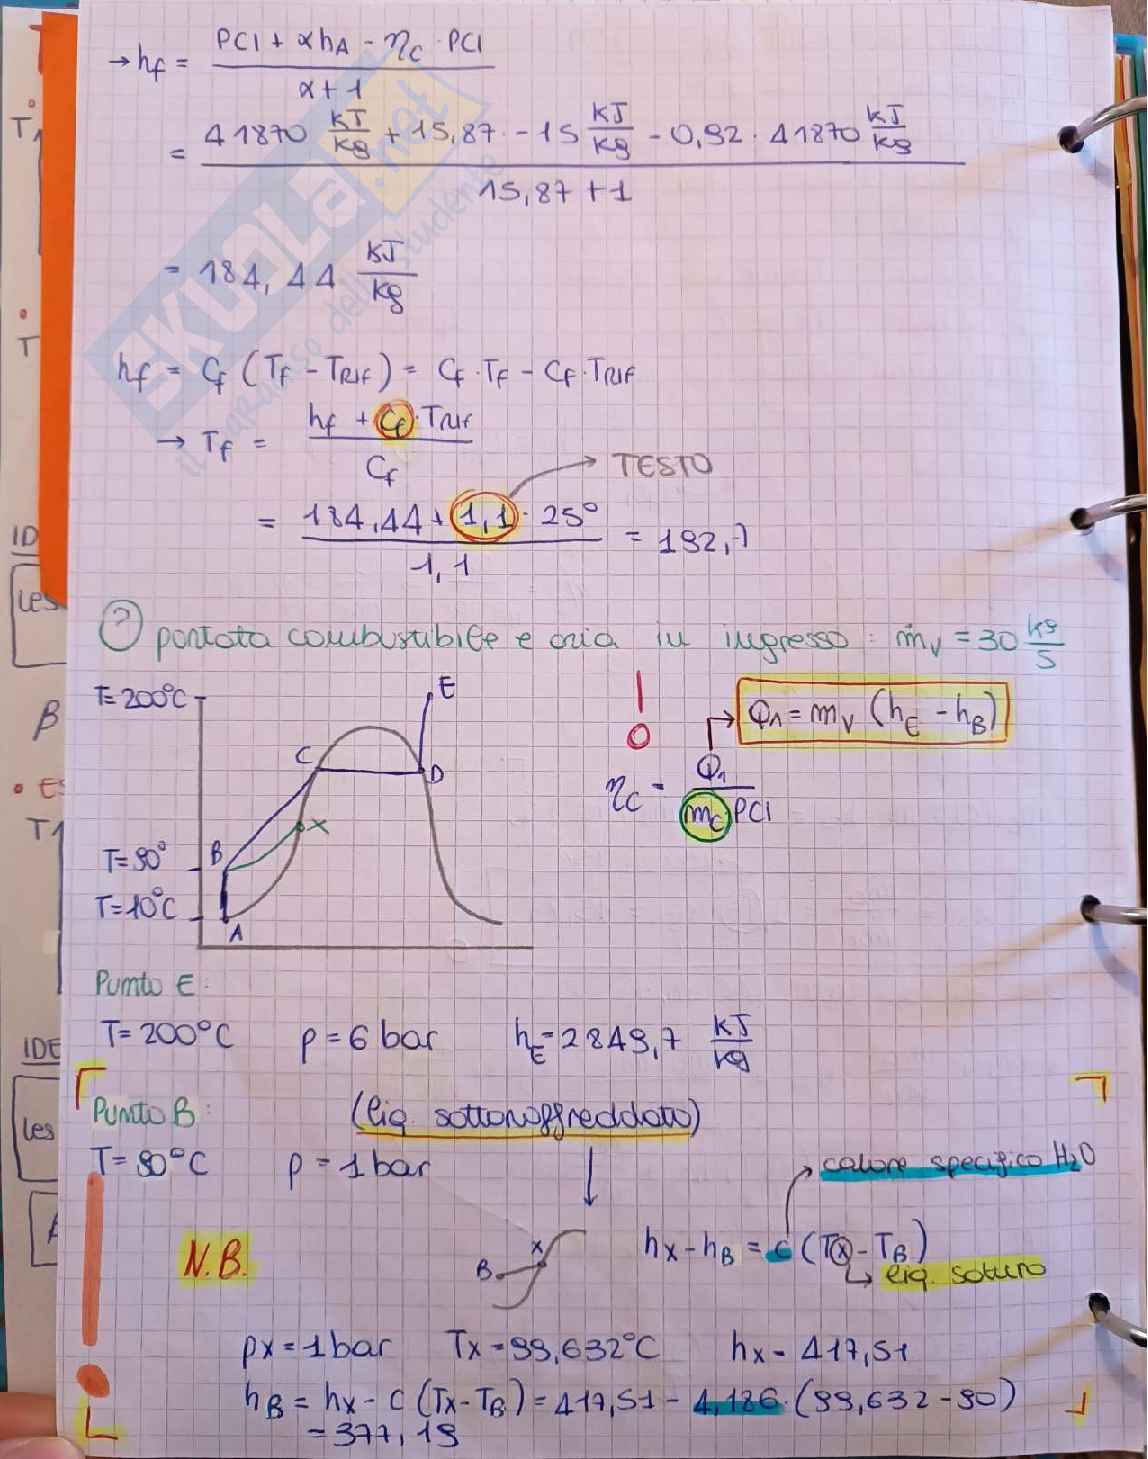 → hf = PCI + αhA - ηc · PCI / α + 1
= 41870 kJ/kg + 15,87 · -15 kJ/kg - 0,92 · 41870 kJ/kg / 15,87 + 1
= 184,44 kJ/kg
hf = Cf (Tf - TRIF) = Cf · Tf - Cf · TRIF
→ Tf = hf + Cf · TRIF / Cf
→ TESTO
= 184,44 + 1,1 · 25° / 1,1 = 192,7
? portata combustibile e aria in ingresso : ṁv = 30 kg/s
T = 200°C
E
C
D
x
T = 90°
B
T = 10°C
A
!
Φ1 = ṁv (hE - hB)
ηc = Φ1 / ṁc PCI
Punto E:
T = 200°C p = 6 bar hE = 2849,7 kJ/kg
Punto B: (liq. sottoraffreddato)
T = 90°C p = 1 bar
calore specifico H2O
N.B.
B
x
hx - hB = c (Tx - TB)
liq. saturo
px = 1 bar Tx = 99,632°C hx = 417,51
hB = hx - c (Tx - TB) = 417,51 - 4,186 · (99,632 - 90)
= 377,19
SKUOLA.net
il paradiso dello studente
T1
T
ID
Les
β
T1
IDE
Les